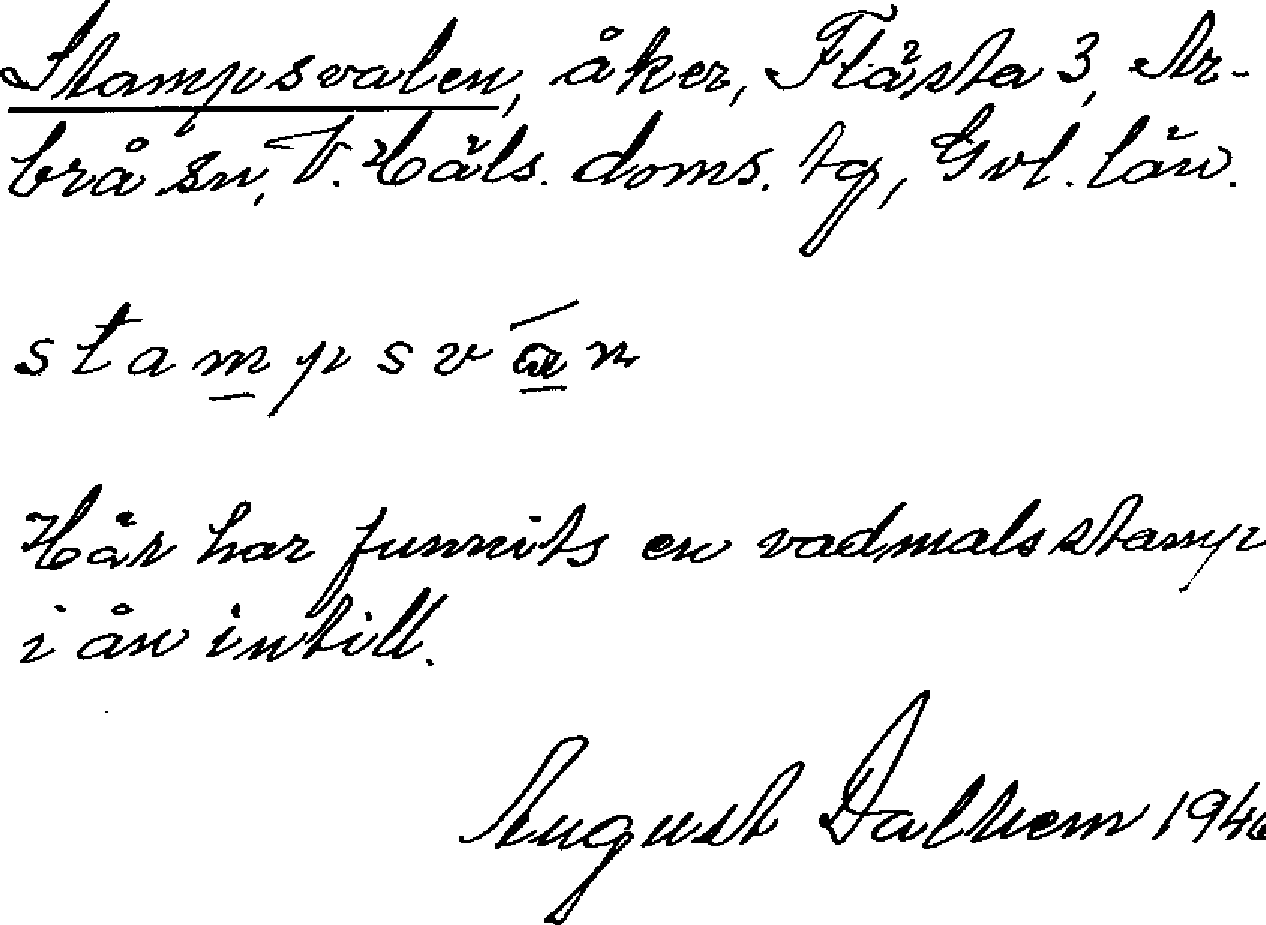 Stampsvalen, åker, Flästa 3, Ar-
brå sn, V. Häls. doms. tg, Gvl. län.
stampsván
Här har funnits en vadmalsstamp
i ån intill.
August Dalhem